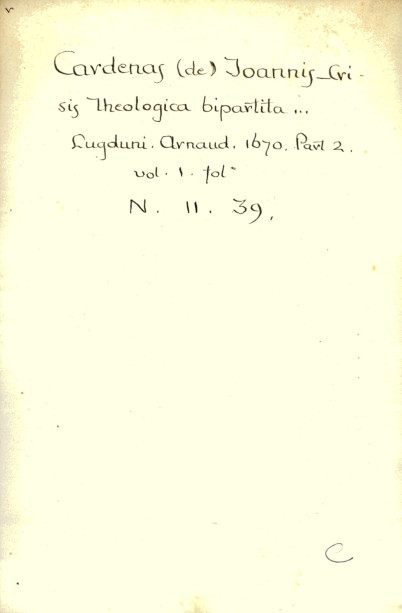 Cardenas (de) Joannis_Cri-
sis Theologica bipartita ...
Lugduni. Arnaud. 1670. Part 2.
vol. 1. fol°
N. 11. 39.
C